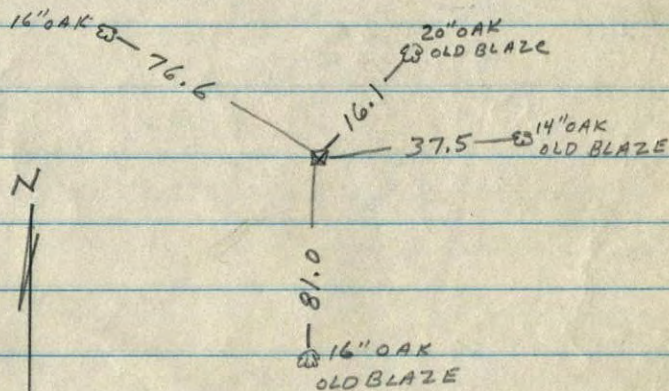 16" OAK
76.6
20" OAK
OLD BLAZE
16.1
37.5
14" OAK
OLD BLAZE
N
81.0
16" OAK
OLD BLAZE